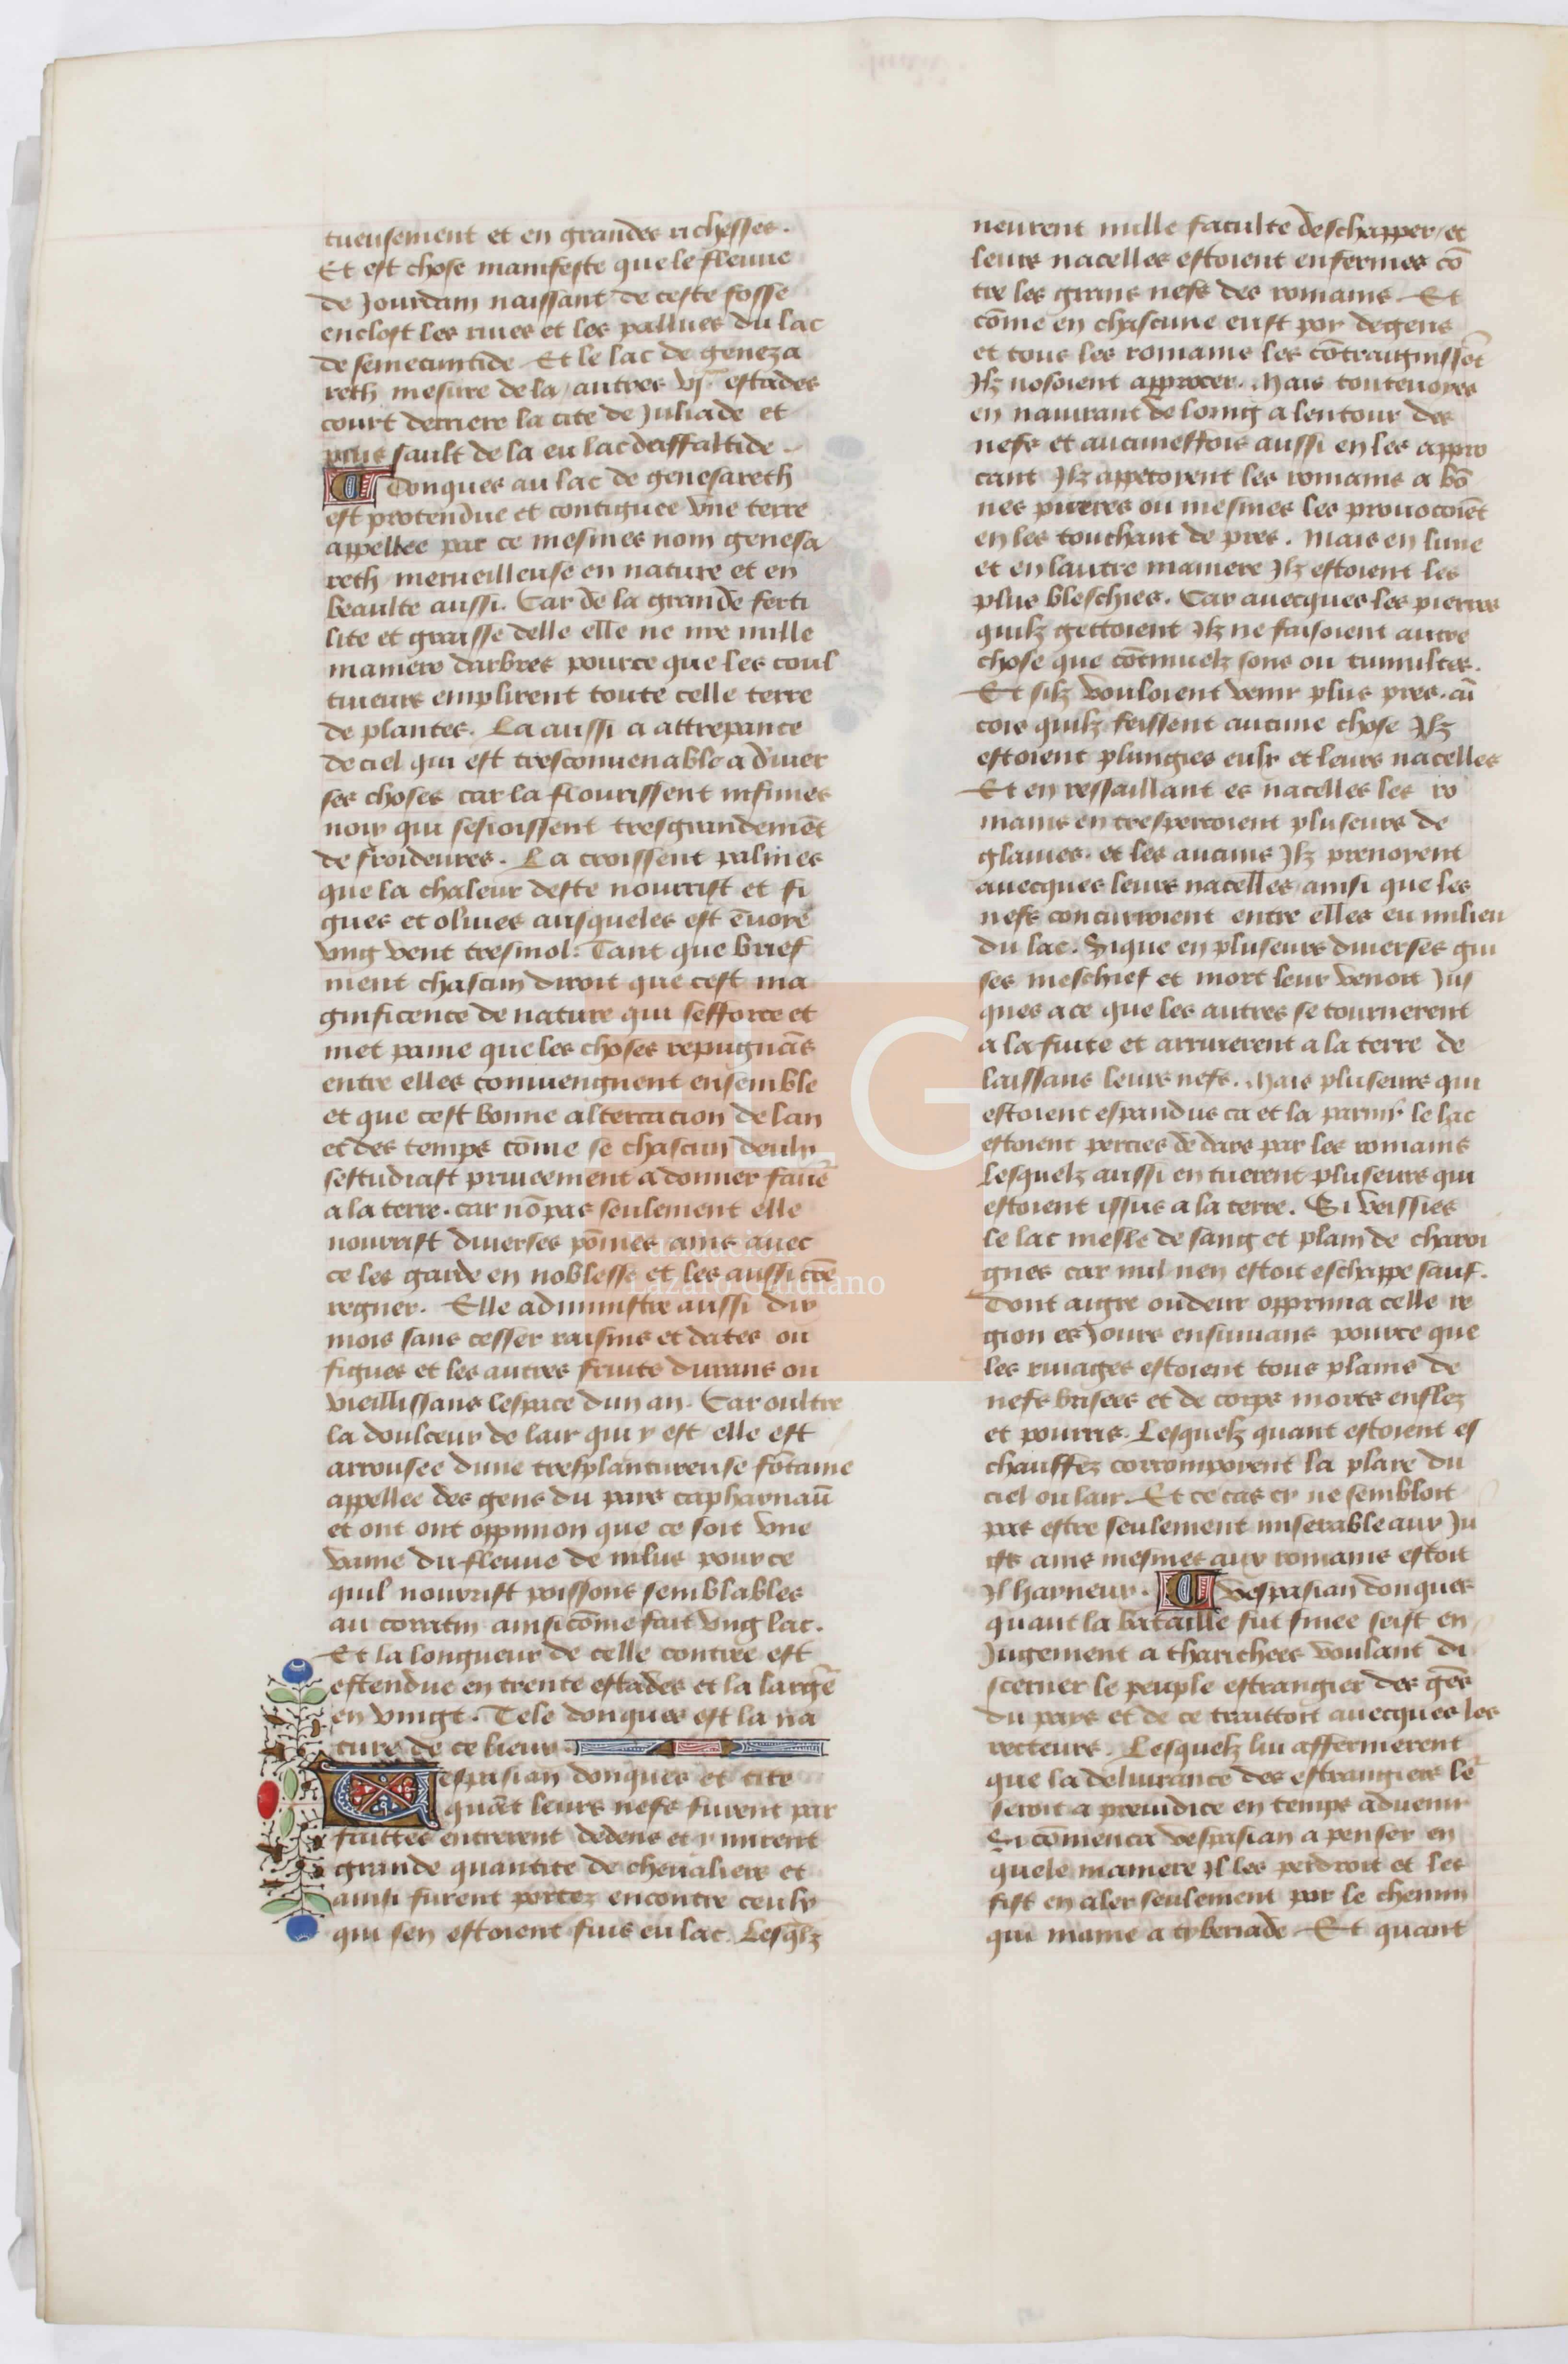 tueusement et en grandes richesses.
Et est chose manifeste que le fleuue
de Jourdain naissant de ceste fosse
enclost les riues et les pallues du lac
de semecuntide Et le lac de geneza
reth mesure de la / autres vj.xx estades
court derriere la cite de Juliade et
puis sault de la eu lac daffaltide.
Donques au lac de genesareth
est protendue et contigue vne terre
appellee par ce mesmes nom genesa
reth merueilleuse en nature et en
beaulte aussi. Car de la grande ferti
lite et graisse delle elle ne nye nulle
maniere darbres pource que les coul
tiueurs emplirent toute celle terre
de plantes. La aussi a attrepance
de ciel qui est tresconuenable a diuer
ses choses car la flourissent infinies
noix qui sesioissent tresgrandemēt
de froidures. La croissent palmes
que la chaleur deste nourrist et fi
gues et oliues ausqueles est ēuoye
vng vent tresmol. Tant que brief
ment chascun diroit que cest ma
gnificence de nature qui sefforce et
met paine que les choses repugnās
entre elles conuiengnent ensemble
et que cest bonne altercacion de lan
et des temps cōme se chascun deulx
sestudiast priueement a donner faueˉ
a la terre. car nō pas seulement elle
nourrist diuerses pōmes ains auec
ce les garde en noblesse et les aussi
regner. Elle administre aussi dix
mois sans cesser raisins et dates ou
figues et les autres fruits durans ou
vieillissans lespace dun an. Car oultre
la doulceur de lair qui y est / elle est
arrousee dune tresplantureuse fōtaine
appellee des gens du pays capharnaū
et ont ont oppinion que ce soit vne
vaine du fleuue de nilus pource
quil nourrist poissons semblables
au corratin ainsi cōme fait vng lac.
Et la longueur de celle contree est
estendue en trente estades et la largeˉ
en vingt. Tele donques est la na
ture de ce lieux
Vespasian donques et tite
quāt leurs nefs furent par
faittes entrerent dedens et y mirent
grande quantite de cheualiers et
ainsi furent portez encontre ceulx
qui sen estoient fuis eu lac. Lesqlz
neurent nulle faculte deschapper / et
leurs nacelles estoient enfermes cō
tre les grans nefs des romains. Et
cōme en chascune eust poy de gens
et tous les romains les cōtraignissēt
Jlz nosoient approcer. Mais toutesuoyes
en nauirant de loing a lentour des
nefs et aucuneffois aussi en les appro
cant Jlz appetoyent les romains a bō
nes pierres ou mesmes les prouocoiēt
en les touchant de pres. Mais en lune
et en lautre maniere Jlz estoient les
plus bleschies. Car auecques les pierres
quilz gettoient Jlz ne faisoient autre
chose que cōtinuelz sons ou tumultes.
Et silz vouloient venir plus pres. aī
cois quilz feissent aucune chose Jlz
estoient plungies eulx et leurs nacelles
Et en ressaillant es nacelles les ro
mains en tresperçoient pluseurs de
glaiues. et les aucuns Jlz prenoyent
auecques leurs nacelles ainsi que les
nefs concurroient entre elles eu milieu
du lac. Sique en pluseurs diuerses gui
ses meschief et mort leur venoit Jus
ques a ce que les autres se tournerent
a la fuite et arriuerent a la terre de
laissans leurs nefs. Mais pluseurs qui
estoient espandus ca et la parmy le lac
estoient percies de dars par les romains
Lesquelz aussi en tuerent pluseurs qui
estoient issus a la terre. Si veissies
le lac mesle de sang et plain de charoi
gnes car nul nen estoit eschappe sauf.
Dont aigre oudeur opprima celle re
gion es Jours ensiuuans pource que
les riuages estoient tous plains de
nefs brisees et de corps mors enflez
et pourris. Lesquelz quant estoient es
chauffez corrompoyent la plaie du
ciel ou lair. Et ce cas cy ne sembloit
pas estre seulement miserable aux Ju
ifs ains mesmes aux romains estoit
il hayneux. Vespasian donques
quant la bataille fut finee seist en
Jugement a tharichees voulant di
scerner le peuple estrangier des gēs
du pays et de ce traittoit auecques les
recteurs. Lesquelz lui affermerent
que la deliurance des estrangiers leˉ
seroit a preiudice en temps aduenir
Si cōmenca vespasian a penser en
quele maniere Jl les perdroit et les
fist en aler seulement par le chemin
qui maine a tyberiade. Et quant
FLG
Fundación
Lázaro Galdiano